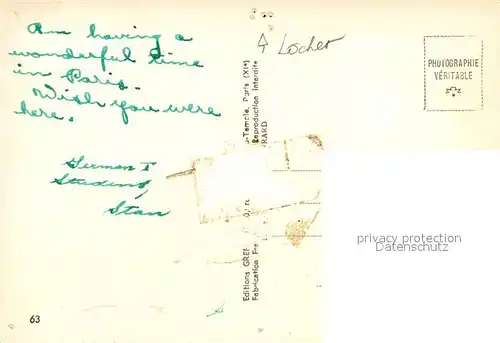 Am having a
wonderful time
in Paris.
Wish you were
here.
German I
Student,
Stan
63
Locher
PHOTOGRAPHIE
VÉRITABLE
-Temple, Paris (XIe)
Reproduction interdite
Editions GREF
Fabrication Fra
privacy protection
Datenschutz